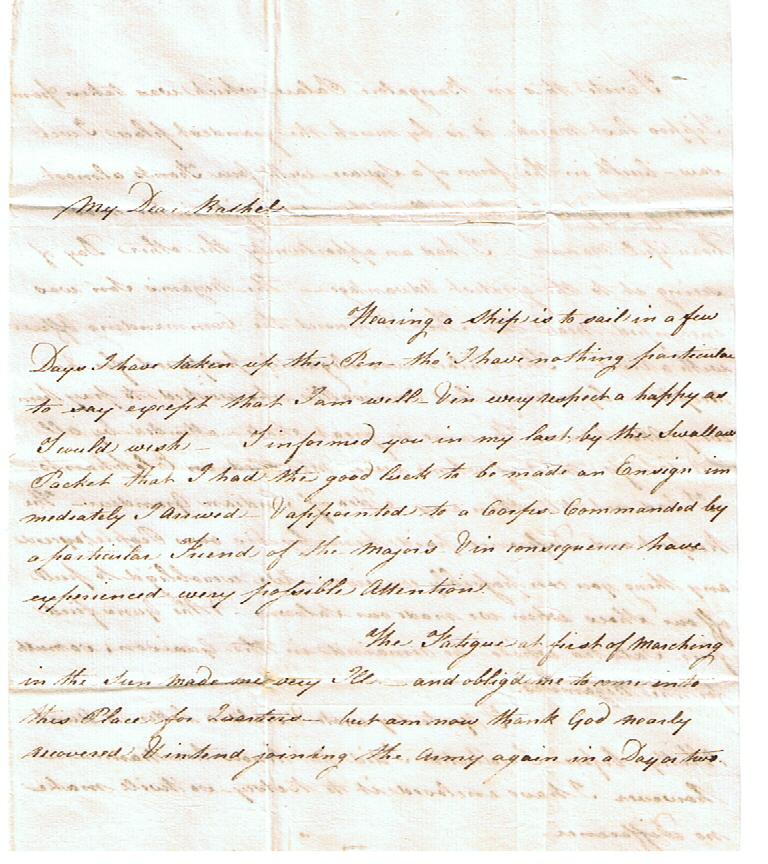 My Dear Rachel
Hearing a Ship is to sail in a few
Days I have taken up the Pen - tho' I have nothing particular
to say except that I am well - & in every respect a happy as
I could wish - I informed you in my last by the Swallow
Packet that I had the good luck to be made an Ensign im
mediately I Arrived - & appointed to a Corps Commanded by
a particular Friend of the Major's & in consequence have
experienced every possible Attention.
The Fatigue at first of Marching
in the Sun made me very Ill - and oblig'd me to come into
this Place for Quarters - but am now thank God nearly
recovered & intend joining the Army again in a Day or two